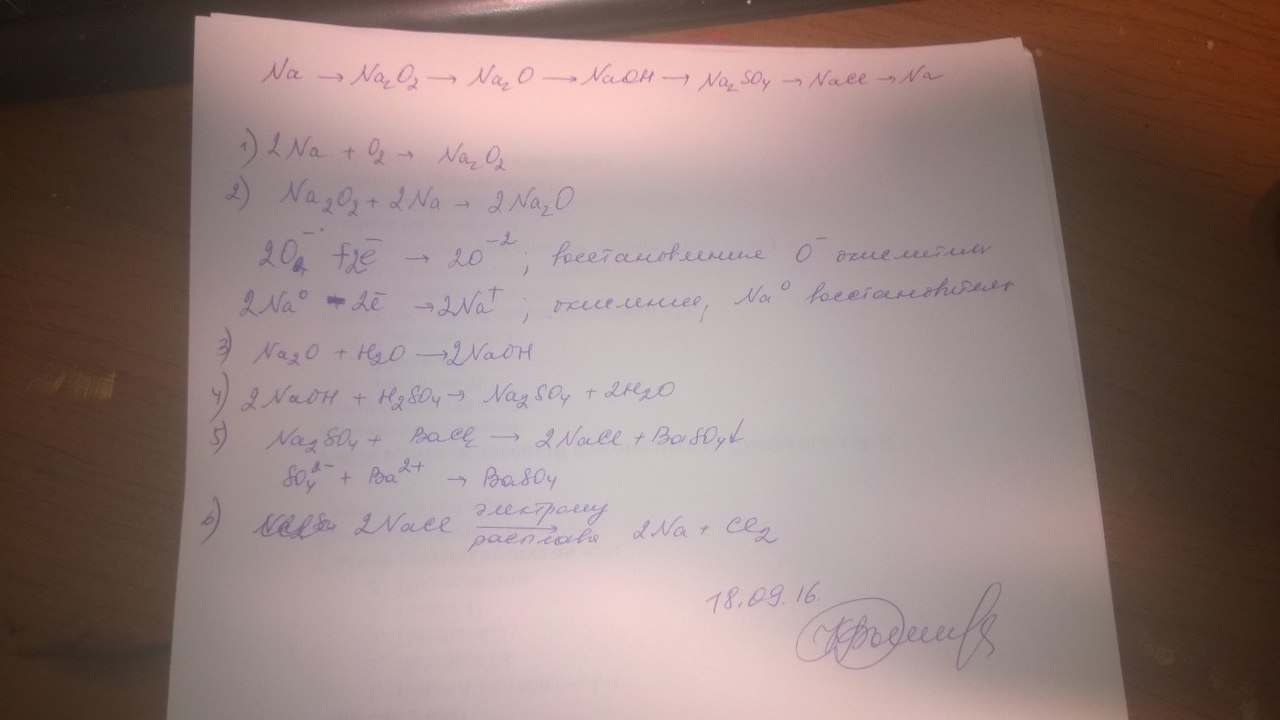 Na → Na₂O₂ → Na₂O → NaOH → Na₂SO₄ → NaCl → Na
1) 2Na + O₂ → Na₂O₂
2) Na₂O₂ + 2Na → 2Na₂O
2O⁻ + 2ē → 2O⁻² ; восстановление O⁻ окислитель
2Na⁰ - 2ē → 2Na⁺ ; окисление, Na⁰ восстановитель
3) Na₂O + H₂O → 2NaOH
4) 2NaOH + H₂SO₄ → Na₂SO₄ + 2H₂O
5) Na₂SO₄ + BaCl₂ → 2NaCl + BaSO₄↓
SO₄²⁻ + Ba²⁺ → BaSO₄
6) 2NaCl электролиз расплава → 2Na + Cl₂
18.09.16.